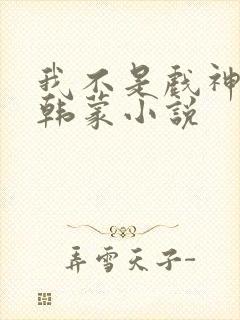 我不是戏神
韩蒙小说
弄雪天子-